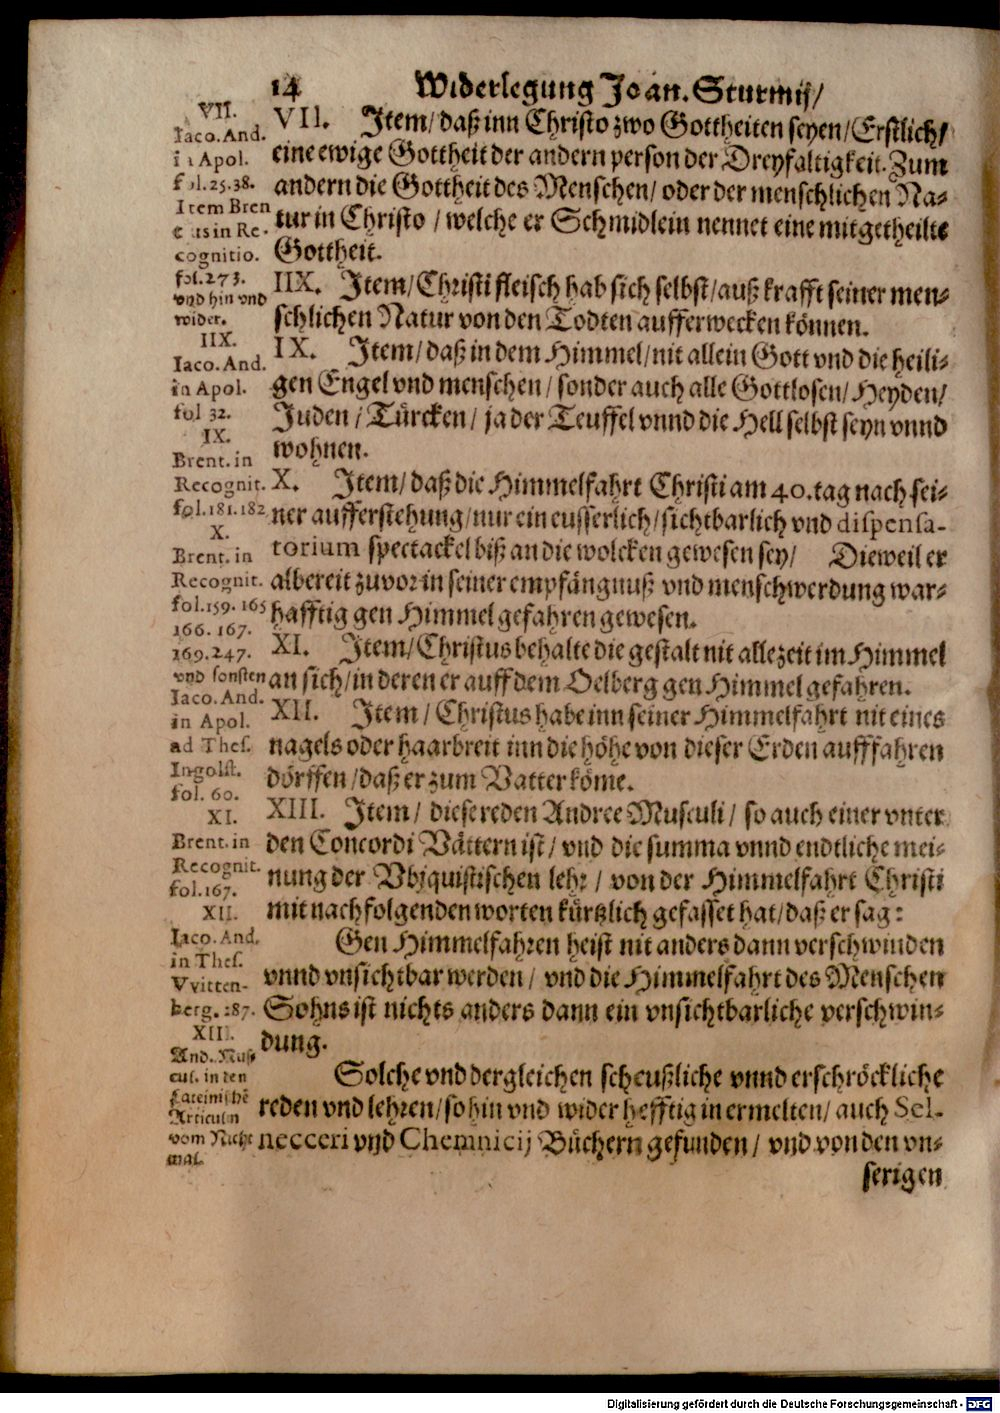 14 Widerlegung Joan. Sturmij/
VII. Item/ daß inn Christo zwo Gottheiten seyen/ Erstlich/
eine ewige Gottheit der andern person der Dreyfaltigkeit. Zum
andern die Gottheit des Menschen/ oder der menschlichen Na-
tur in Christo / welche er Schmidlein nennet eine mitgetheilte
Gottheit.
IIX. Item/ Christi fleisch hab sich selbst/ auß krafft seiner men-
schlichen Natur von den Todten aufferwecken können.
IX. Item/ daß in dem Himmel/ nit allein Gott vnd die heili-
gen Engel vnd menschen/ sonder auch alle Gottlosen/ Heyden/
Juden / Türcken/ ja der Teuffel vnnd die Hell selbst seyn vnnd
wohnen.
X. Item/ daß die Himmelfahrt Christi am 40. tag nach sei-
ner aufferstehung/ nur ein eusserlich/ sichtbarlich vnd dispensa-
torium spectackel biß an die wolcken gewesen sey/ Dieweil er
albereit zuvor in seiner empfängnuß vnd menschwerdung war-
hafftig gen Himmel gefahren gewesen.
XI. Item/ Christus behalte die gestalt nit allezeit im Himmel
an sich/ in deren er auff dem Oelberg gen Himmel gefahren.
XII. Item / Christus habe inn seiner Himmelfahrt nit eines
nagels oder haarbreit inn die höhe von dieser Erden aufffahren
dörffen/ daß er zum Vatter köme.
XIII. Item/ diese reden Andree Musculi/ so auch einer vnter
den Concordi Vättern ist/ vnd die summa vnnd endtliche mei-
nung der Vbiquistischen lehr/ von der Himmelfahrt Christi
mit nachfolgenden worten kürtzlich gefasset hat/ daß er sag:
Gen Himmelfahren heist nit anders dann verschwinden
vnnd vnsichtbar werden/ vnd die Himmelfahrt des Menschen
Sohns ist nichts anders dann ein vnsichtbarliche verschwin-
dung.
Solche vnd dergleichen scheußliche vnnd erschröckliche
reden vnd lehren/ so hin vnd wider hefftig in ermelten/ auch Sel-
necceri vnd Chemnicij Büchern gefunden/ vnd von den vn-
serigen
VII.
Iaco. And.
in Apol.
fol. 25. 38.
Item Bren
tius in Re-
cognitio.
fol. 273.
vnd hin vnd
wider.
IIX.
Iaco. And.
in Apol.
fol 32.
IX.
Brent. in
Recognit.
fol. 181. 182
X.
Brent. in
Recognit.
fol. 159. 165
166. 167.
169. 247.
vnd sonsten
Iaco. And.
in Apol.
ad Thes.
Ingolst.
fol. 60.
XI.
Brent. in
Recognit.
fol. 167.
XII.
Iaco. And.
in Thes.
Vvitten-
berg. 187.
XIII.
And. Mus-
cul. in den
Lateinischē
Articuln
vom Nacht
mal.
Digitalisierung gefördert durch die Deutsche Forschungsgemeinschaft - DFG